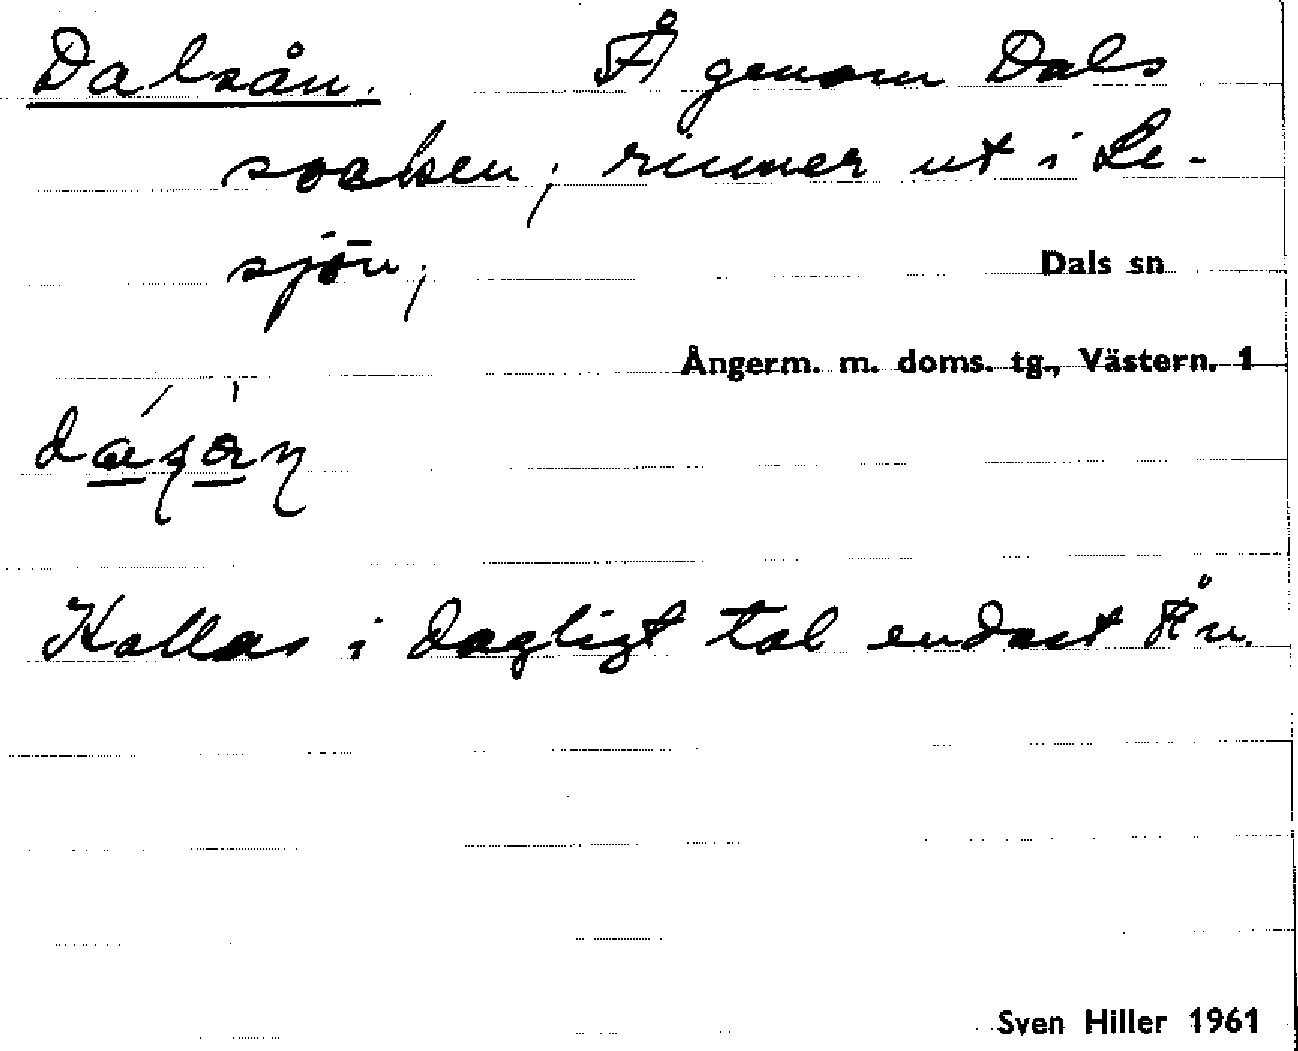 Dalsån. Å genom Dals
socken; rinner ut i Le-
sjön;
Dals sn
Ångerm. m. doms. tg., Västern. 1
Kallas i dagligt tal endast Ån.
Sven Hiller 1961